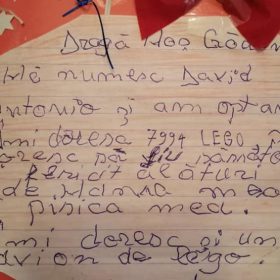 Dragă Moș Crăciun
Mă numesc David
Antonio și am opt an
Îmi doresc 7994 LEGO
doresc să fiu sănătos
fericit alături
de mama mea
pisica mea.
Îmi doresc și un
avion de lego.